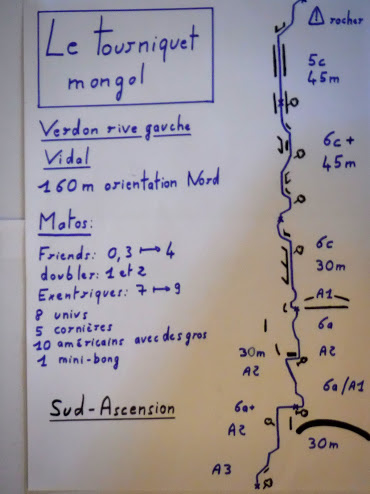 Le tourniquet
mongol
Verdon rive gauche
Vidal
160m orientation Nord
Matos:
Friends: 0,3 ↦ 4
doubler: 1 et 2
Exentriques: 7 ↦ 9
8 univs
5 cornières
10 américains avec des gros
1 mini-bong
Sud-Ascension
rocher
5c
45m
6c+
45m
6c
30m
A1
6a
A2
30m
A2
6a/A1
6a+
A2
30m
A3